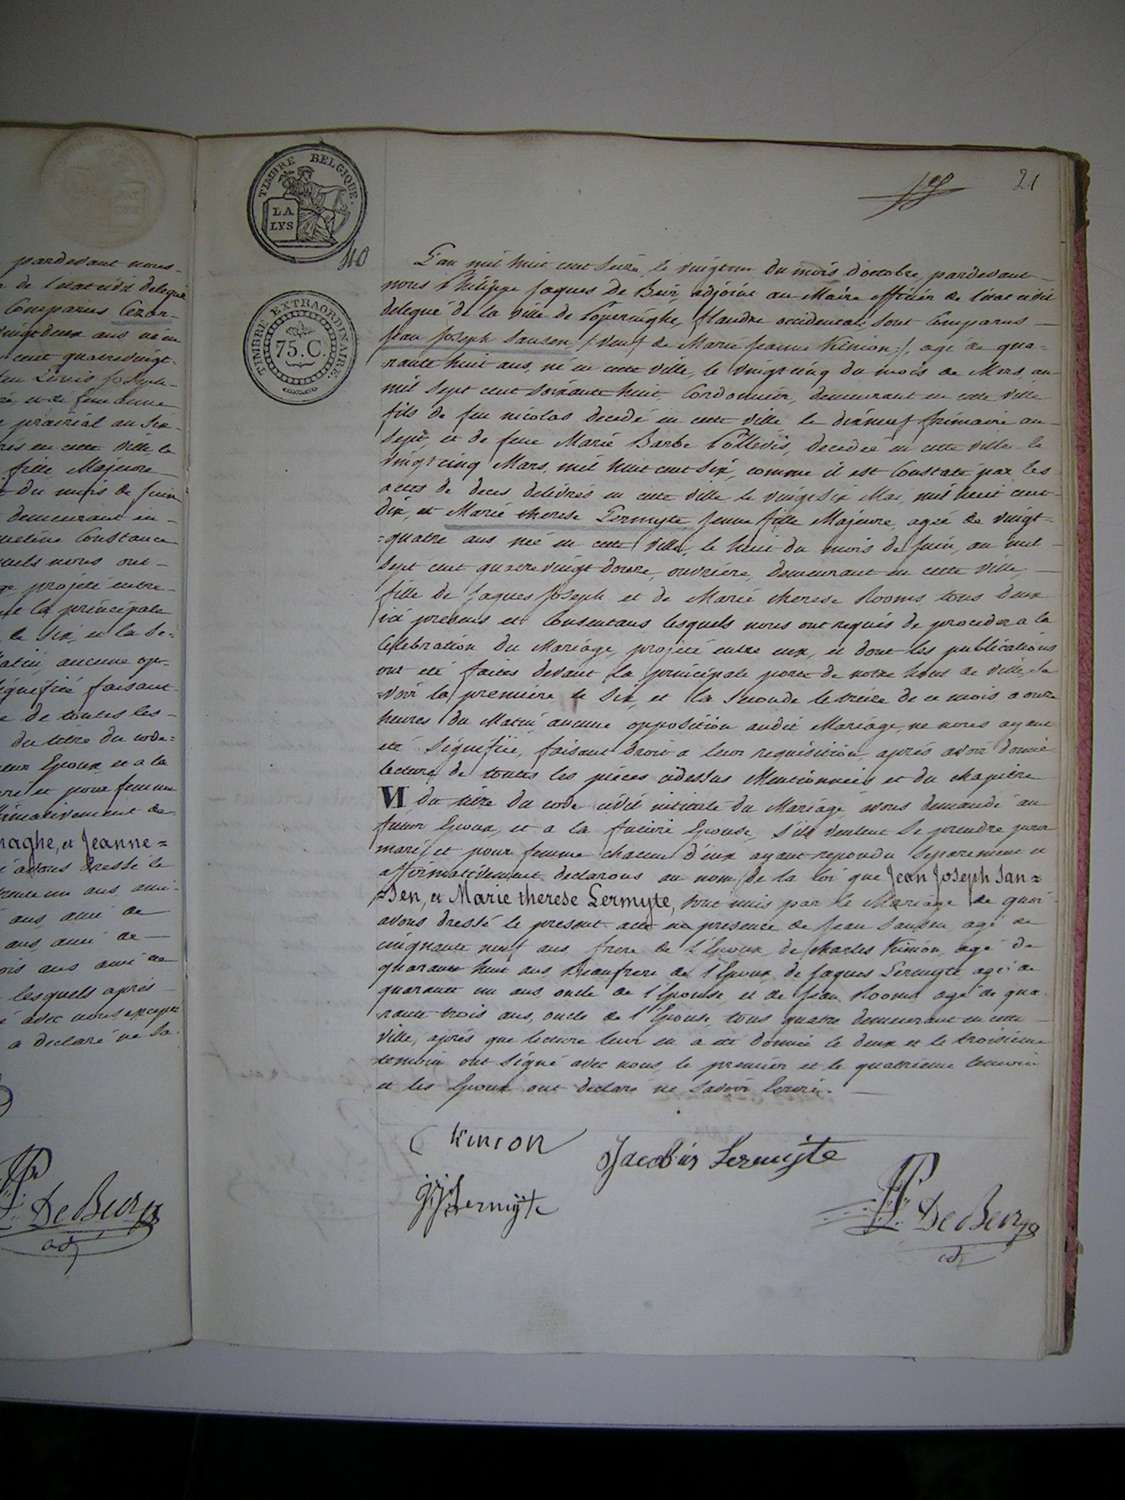 pardevant nous
de l'etat civil delegué
Comparus Cezar-
vingt deux ans né en
cent quatre vingt-
feu Louis Joseph
et de feue Anne
prairial an Six
en cette ville le
fille Majeure
du mois de Juin
demeurant en-
Constance
quels nous ont-
projeté entre-
et la principale
le six et la Se-
Matin, aucune op-
signifiée faisant
de toutes les-
du titre du code-
Epoux, et a la
et pour femme
affirmativement de
naghe, et Jeanne=
avons dressé le
ans, ami de
ans ami de
ans ami de
lesquels après-
avec nous excepté
a declaré ne Sa
De Beir
adj
TIMBRE BELGIQUE.
LA
LYS
40
TIMBRE EXTRAORDINAIRE.
75. C.
21
L'an mil huit cent Seize, le vingt un du mois d'octobre, pardevant
nous Philippe Jaques De Beir, adjoint au Maire officier de l'état civil
delegué de la ville de Poperinghe, flandre occidentale Sont Comparus
Jean Joseph Sansen /:veuf de Marie Jeanne Kinion:/, agé de qua-
rante huit ans, né en cette ville, le vingt cinq du mois de Mars, an
mil sept cent soixante huit Cordonnier, demeurant en cette ville
fils de feu nicolas decedé en cette ville le dixneuf frimaire an
sept, et de feue Marie Barbe, decedée en cette ville le
vingt cinq Mars, mil huit cent six, comme il est Constaté par les
actes de deces delivrés en cette ville le vingt six Mai, mil huit cent
dix, et Marie therese Lermyte, jeune fille Majeure, agée de vingt-
=quatre ans née en cette ville, le huit du mois de Juin, an mil
Sept cent quatre vingt douze, ouvrière, demeurant en cette ville,
fille de Jaques Joseph et de Marie therese Rooms tous deux
ici presens et Consentans lesquels nous ont requis de proceder a la
Celebration du Mariage, projeté entre eux, et dont les publications
ont été faites devant la principale porte de notre hotel de ville, Sa
voir la première le Six, et la Seconde le treize de ce mois a onze
heures du Matin, aucune opposition audit Mariage, ne nous ayant
été Signifiée, faisant droit a leur requisition, après avoir donné
lecture de toutes les pièces cidessus Mentionnées et du chapitre
VI du titre du code civil intitulé du Mariage, avons demandé au
futur Epoux, et a la future Epouse, S'ils veulent Se prendre pour
mari, et pour femme chacun d'eux ayant repondu Separement et
affirmativement declarons au nom de la loi que Jean Joseph San=
=Sen, et Marie therese Lermyte, Sont unis par le Mariage de quoi
avons dressé le present acte en presence de Jean Sansen agé de
cinquante neuf ans frere de l'Epoux, de Charles Kinion, agé de
quarante huit ans Beaufrere de l'Epoux de Jaques Lermyte agé de
quarante un ans, oncle de l'Epouse, et de Jean Rooms agé de qua-
rante trois ans, oncle de l'Epouse, tous quatre demeurant en cette
ville, après que lecture leur en a été donnée le deux et le troisième
temoin ont Signé avec nous, le premier et le quatrième temoin
et les Epoux ont declaré ne Savoir Ecrire.
C Kinion
Jacobus Lermijte
J: J: Lermijte
De Beir
adj